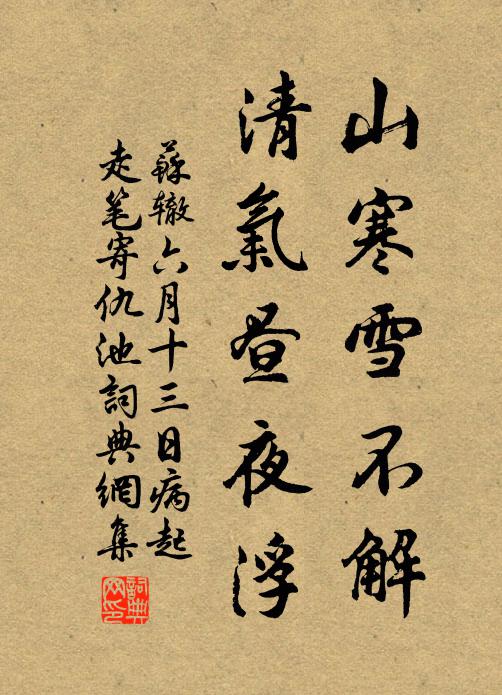 山寒雪不解
清氣昼夜浮
蘇辙六月十三日病起
走笔寄仇池詞典網集
詞典
网印